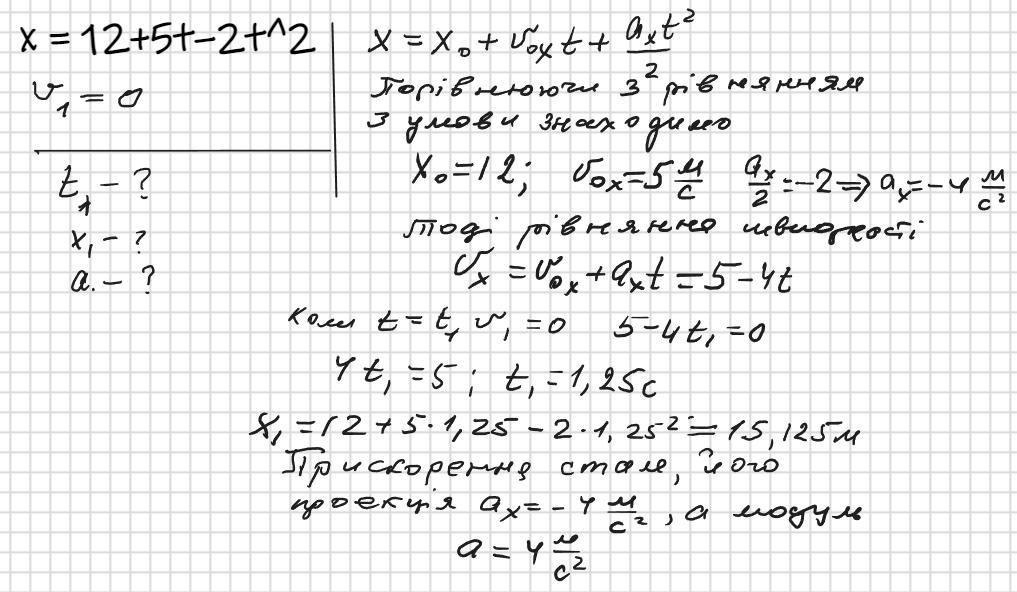 x = 12+5t-2t^2
v₁ = 0
t₁ - ?
x₁ - ?
a - ?
x = x₀ + v₀ₓt + aₓt²/2
Порівнюючи з рівнянням
з умови знаходимо
x₀ = 12; v₀ₓ = 5 м/с aₓ/2 = -2 ⇒ aₓ = -4 м/с²
Тоді рівняння швидкості
vₓ = v₀ₓ + aₓt = 5 - 4t
коли t = t₁ v₁ = 0 5 - 4t₁ = 0
4t₁ = 5; t₁ = 1,25с
x₁ = 12 + 5·1,25 - 2·1,25² = 15,125м
Прискорення стале, його
проекція aₓ = -4 м/с², а модуль
a = 4 м/с²